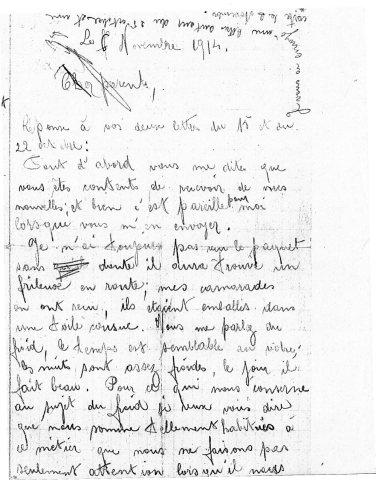 carte le 2 Novembre.
une lettre autant du 25 octobre et une
Le 6 Novembre 1914.
Cher parents,
Réponse à vos deux lettre du 15 et du
22 octobre :
Tout d'abord vous me dites que
vous êtes contents de recevoir de mes
nouvelles; et bien c'est pareille pour moi
lorsque vous m'en envoyer.
Je n'ai toujours pas reçu le paquet
sans doute il aura trouvé un
frileuse en route; mes camarades
en ont reçu, ils étaient emballés dans
une toile cousue. Vous me parlez du
froid, le temps est semblable au vôtre,
les nuits sont assez froides, le jour il
fait beau. Pour ce qui nous concerne
au sujet du froid je veux vous dire
que nous somme tellement habitués à
ce métier que nous ne faisons pas
seulement attention lorsqu'il nous